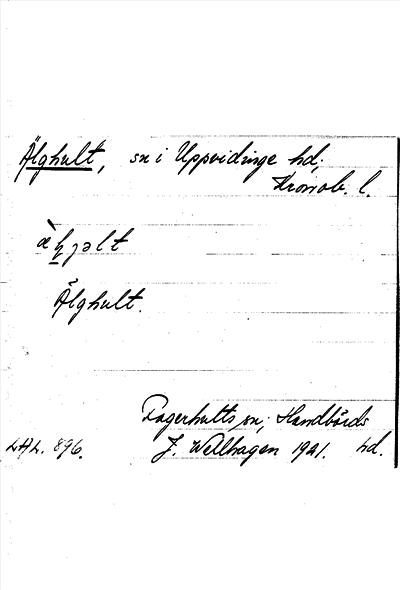 Älghult, sn i Uppvidinge hd,
Kronob. l.
Älghult.
Fagerhults sn; Handbörds
LAL. 896. J. Wellhagen 1921. hd.